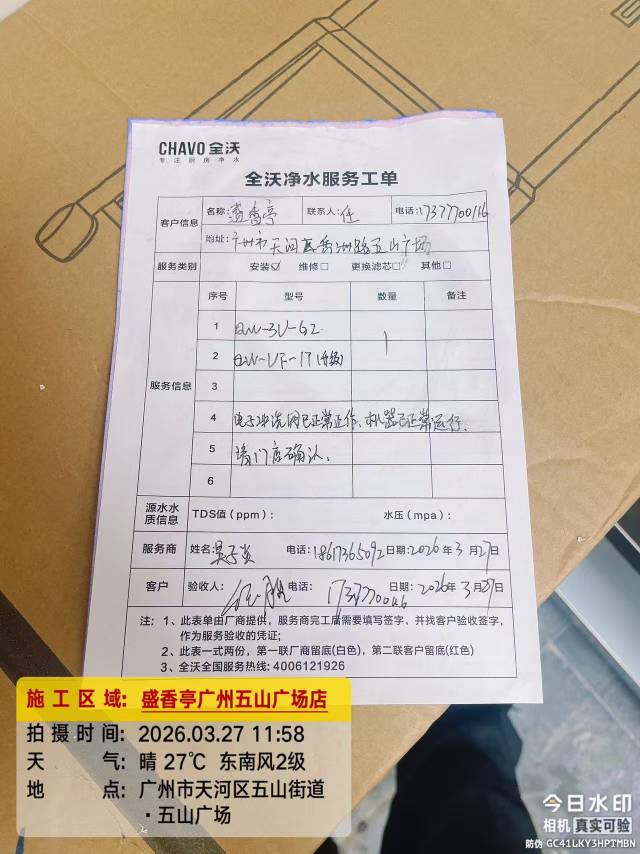 CHAVO 全沃
专注厨房净水
全沃净水服务工单
客户信息 名称: 盛香亭 联系人: 任 电话: 17377700116
地址: 广州市天河区 五山广场
服务类别 安装☑ 维修□ 更换滤芯□ 其他□
服务信息 序号 型号 数量 备注
1 QW-3U-G2 1
2 QW-UF-1T(升级)
3
4 电子冲洗阀已正常工作、机器已正常运行.
5 请门店确认.
6
源水水质信息 TDS值(ppm): 水压(mpa):
服务商 姓名: 电话: 18617365092 日期: 2026年3月27日
客户 验收人: 任 电话: 日期: 2026年3月27日
注: 1、此表单由厂商提供,服务商完工后需要填写签字,并找客户验收签字,
作为服务验收的凭证;
2、此表一式两份,第一联厂商留底(白色),第二联客户留底(红色)
3、全沃全国服务热线: 4006121926
施工区域: 盛香亭广州五山广场店
拍摄时间: 2026.03.27 11:58
天气: 晴 27℃ 东南风2级
地点: 广州市天河区五山街道
·五山广场
今日水印
相机 真实可验
防伪 GC41LKY3HPTMBN